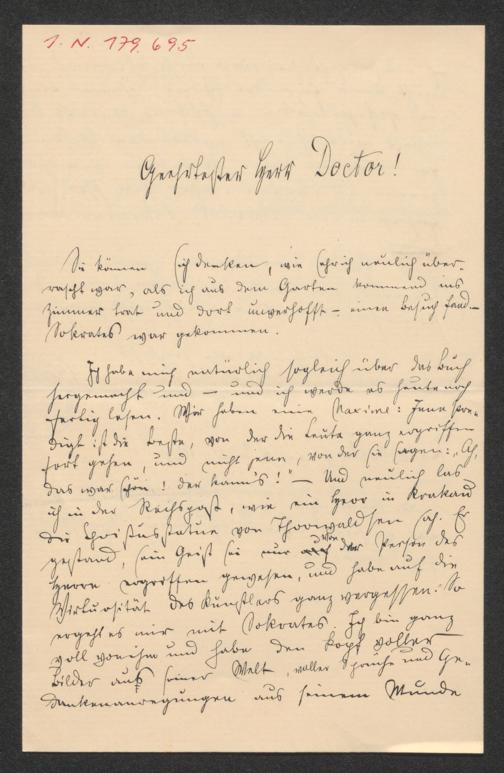 I. N. 179.695
Geehrtester Herr Doctor!
Sie können sich denken, wie sehr ich neulich über-
rascht war, als ich aus dem Garten kommend ins
Zimmer trat und dort unverhofft – einen Besuch fand. –
Sokrates war gekommen.
Ich habe mich natürlich sogleich über das Buch
hergemacht und – und ich werde es heute noch
fertig lesen. Wir haben eine Maxime: Jene Pre-
digt ist die beste, von der die Leute ganz ergriffen
fort gehen, und nicht jene, von der sie sagen: „Ah,
das war schön! der kann's!" – Und neulich las
ich in der Reichspost, wie ein Herr in Krakau
die Christusstatue von Thorwaldsen sah. Er
gestand, sein Geist sei nur von der Person des
Herrn ergriffen gewesen, und habe auf die
Virtuosität des Künstlers ganz vergessen. So
ergeht es mir mit Sokrates. Ich bin ganz
voll von ihm und habe den Kopf voller
Bilder aus seiner Welt, voller Sprüche und Ge-
dankenanregungen aus seinem Munde